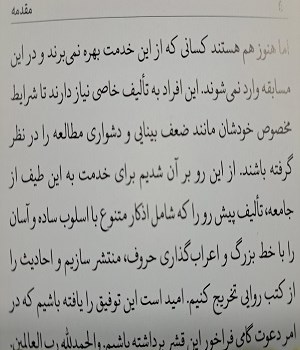 مقدمه
اما هنوز هم هستند کسانی که از این خدمت بهره نمی‌برند و در این
مسابقه وارد نمی‌شوند. این افراد به تألیف خاصی نیاز دارند تا شرایط
مخصوص خودشان مانند ضعف بینایی و دشواری مطالعه را در نظر
گرفته باشند. از این رو بر آن شدیم برای خدمت به این طیف از
جامعه، تألیف پیش رو را که شامل اذکار متنوع با اسلوب ساده و آسان
را با خط بزرگ و اعراب‌گذاری حروف، منتشر سازیم و احادیث را
از کتب روایی تخریج کنیم. امید است این توفیق را یافته باشیم که در
امر دعوت گامی فراخور این قشر برداشته باشیم. والحمدلله رب العالمین.